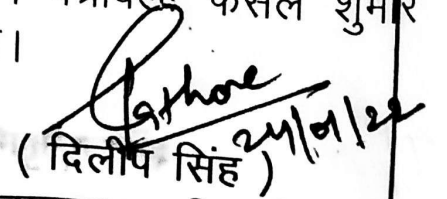 फैसल शुमार
।
Rathore
24/01/22
( दिलीप सिंह )